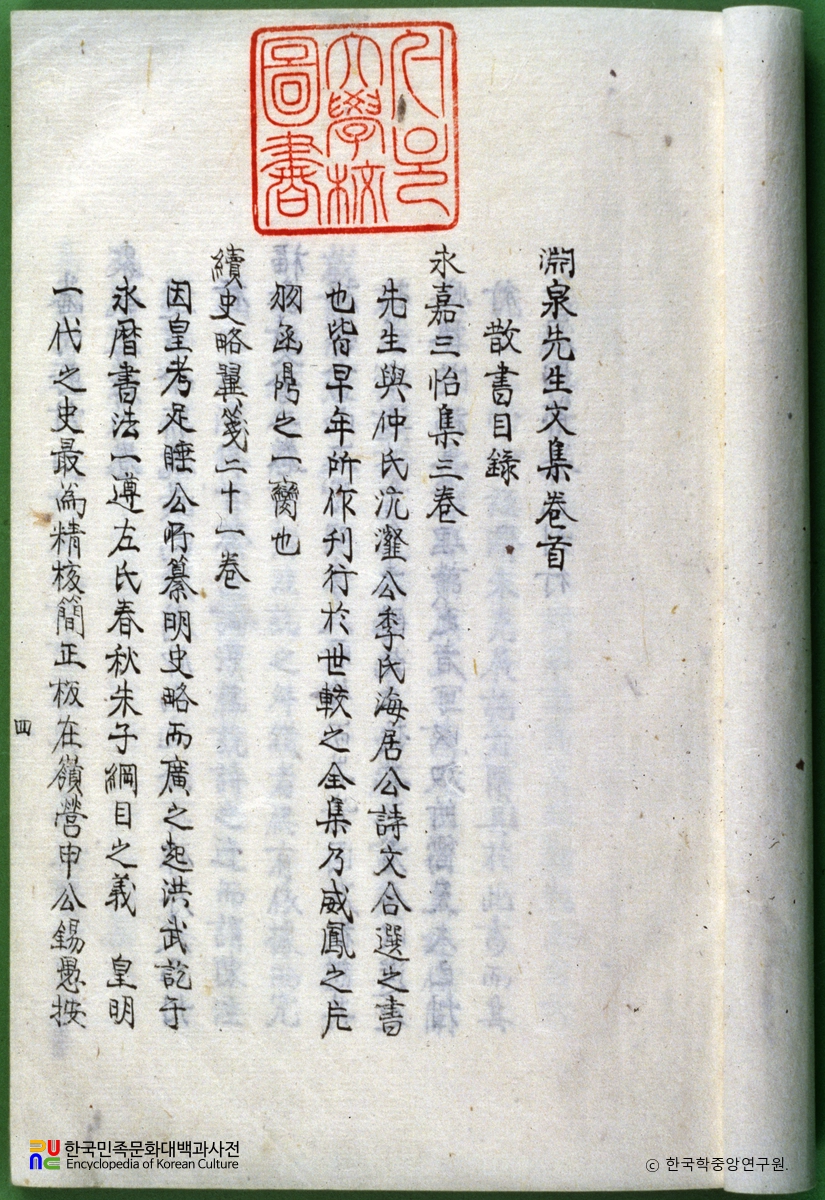 서울
大學校
圖書
淵泉先生文集卷首
散書目錄
永嘉三怡集三卷
先生與仲氏沆瀣公季氏海居公詩文合選之書
也皆早年所作刊行於世較之全集乃威鳳之片
羽函鼎之一臠也
續史略翼箋二十一卷
因皇考足睡公所纂明史略而廣之起洪武訖于
永曆書法一遵左氏春秋朱子綱目之義　皇明
一代之史最為精核簡正板在嶺營申公錫愚按
四
한국민족문화대백과사전
Encyclopedia of Korean Culture
© 한국학중앙연구원.